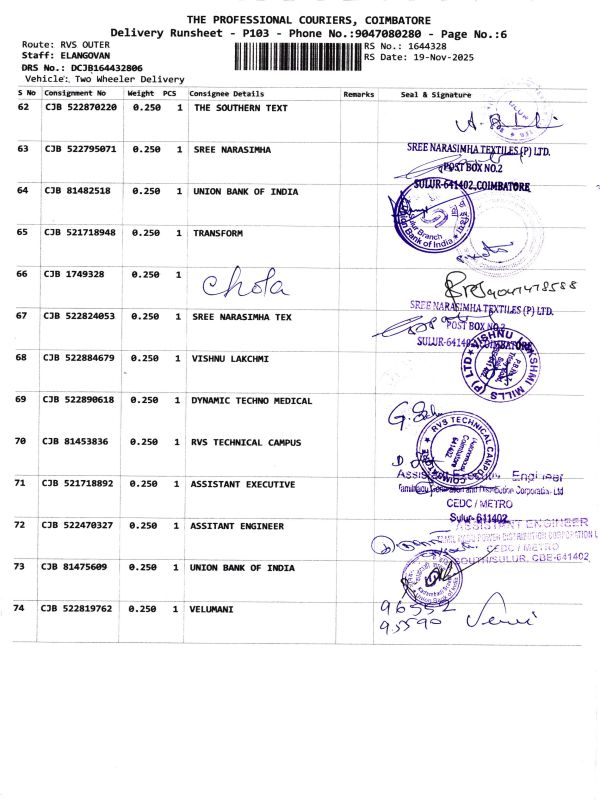 THE PROFESSIONAL COURIERS, COIMBATORE
Delivery Runsheet - P103 - Phone No.:9047080280 - Page No.:6
Route: RVS OUTER RS No.: 1644328
Staff: ELANGOVAN RS Date: 19-Nov-2025
DRS No.: DCJB164432806
Vehicle: Two Wheeler Delivery
S No Consignment No Weight PCS Consignee Details Remarks Seal & Signature
62 CJB 522870220 0.250 1 THE SOUTHERN TEXT
63 CJB 522795071 0.250 1 SREE NARASIMHA SREE NARASIMHA TEXTILES (P) LTD.
POST BOX NO.2
64 CJB 81482518 0.250 1 UNION BANK OF INDIA SULUR-641402, COIMBATORE
Sulur Branch
Union Bank of India
65 CJB 521718948 0.250 1 TRANSFORM
66 CJB 1749328 0.250 1 Chola
67 CJB 522824053 0.250 1 SREE NARASIMHA TEX SREE NARASIMHA TEXTILES (P) LTD.
POST BOX NO.2
SULUR-641402, COIMBATORE
68 CJB 522884679 0.250 1 VISHNU LAKCHMI VISHNU LAKSHMI MILLS (P) LTD
69 CJB 522890618 0.250 1 DYNAMIC TECHNO MEDICAL
70 CJB 81453836 0.250 1 RVS TECHNICAL CAMPUS RVS TECHNICAL CAMPUS
COIMBATORE
(Autonomous)
Coimbatore
641402
71 CJB 521718892 0.250 1 ASSISTANT EXECUTIVE Assistant Executive Engineer
Tamilnadu Generation and Distribution Corporation Ltd
CEDC / METRO
Sulur-641402
72 CJB 522470327 0.250 1 ASSITANT ENGINEER ASSISTANT ENGINEER
TAMIL NADU POWER DISTRIBUTION CORPORATION L
CEDC / METRO
SOUTH/SULUR, CBE-641402
73 CJB 81475609 0.250 1 UNION BANK OF INDIA
Union Bank of India
74 CJB 522819762 0.250 1 VELUMANI 96552
95590